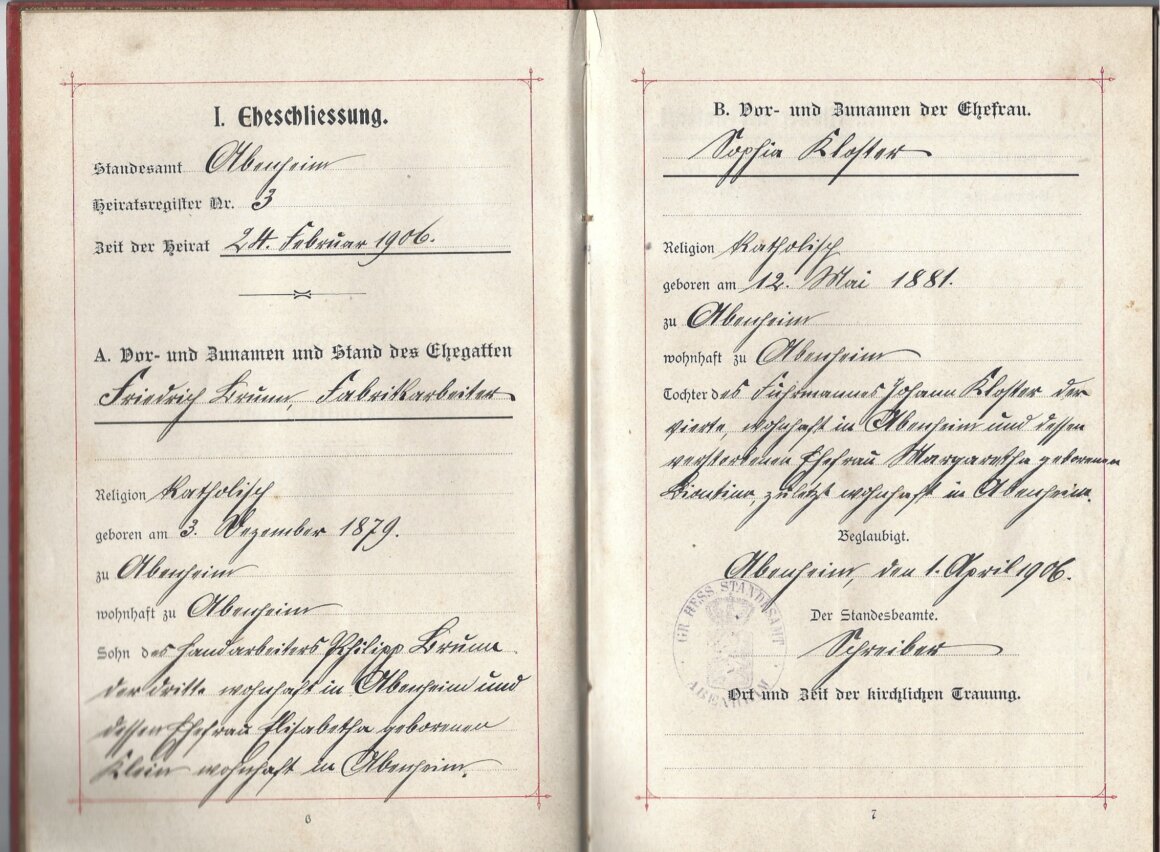 I. Eheschliessung.
Standesamt Abenheim
Heiratsregister Nr. 3
Zeit der Heirat 24. Februar 1906.
A. Vor- und Zunamen und Stand des Ehegatten
Friedrich Brunn, Fabrikarbeiter
Religion Katholisch
geboren am 3. Dezember 1879.
zu Abenheim
wohnhaft zu Abenheim
Sohn des Handarbeiters Philipp Brunn
der dritte wohnhaft in Abenheim und
dessen Ehefrau Elisabetha geborenen
Klein wohnhaft in Abenheim.
6
B. Vor- und Zunamen der Ehefrau.
Sophia Kloster
Religion Katholisch
geboren am 12. Mai 1881.
zu Abenheim
wohnhaft zu Abenheim
Tochter des Fuhrmannes Johann Kloster der
vierte, wohnhaft in Abenheim und dessen
verstorbenen Ehefrau Margaretha geborenen
zuletzt wohnhaft in Abenheim.
Beglaubigt.
Abenheim, den 1. April 1906.
GR. HESS. STANDESAMT
ABENHEIM
Der Standesbeamte.
Schreiber
Ort und Zeit der kirchlichen Trauung.
7